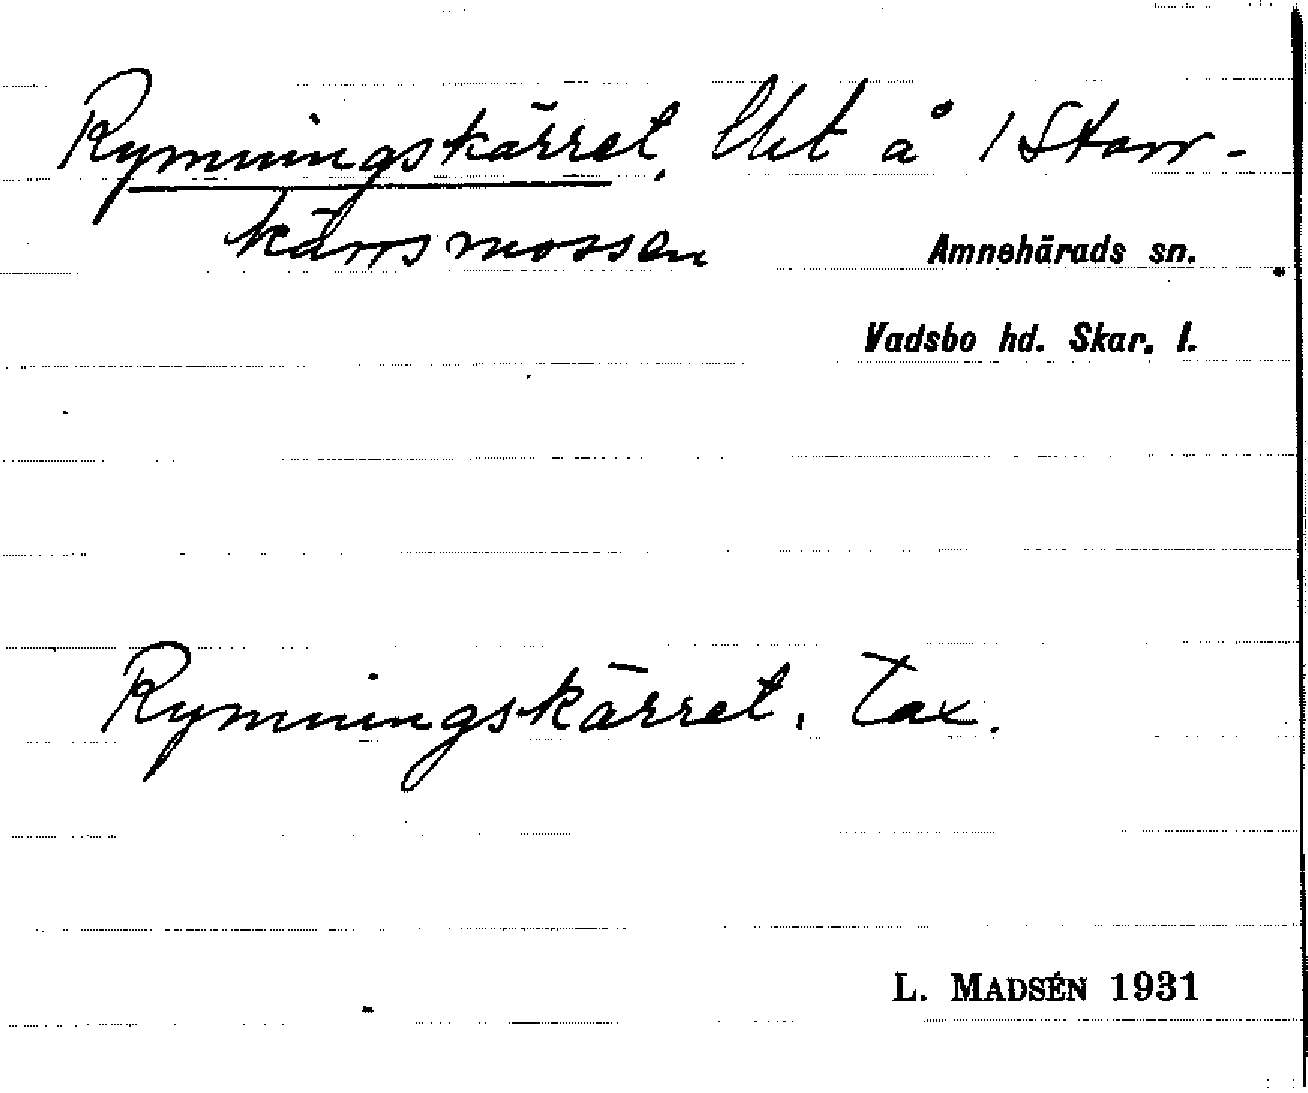 Rymningskärret, Utt å 1 Starr-
kärrsmossen
Amnehärads sn.
Vadsbo hd. Skar. l.
Rymningskärret, Tax.
L. MADSÉN 1931